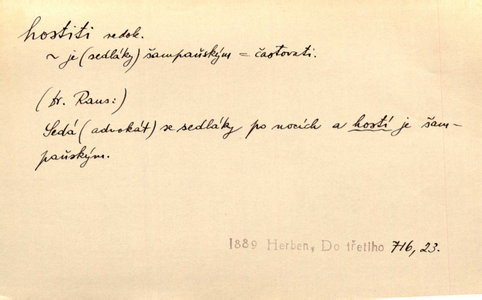 hostiti nedok.
~ je (sedláky) šampaňským = častovati.
(dr. Rans:)
Sedá (advokát) se sedláky po nocích a hostí je šam-
paňským.
1889 Herben, Do třetího 716, 23.